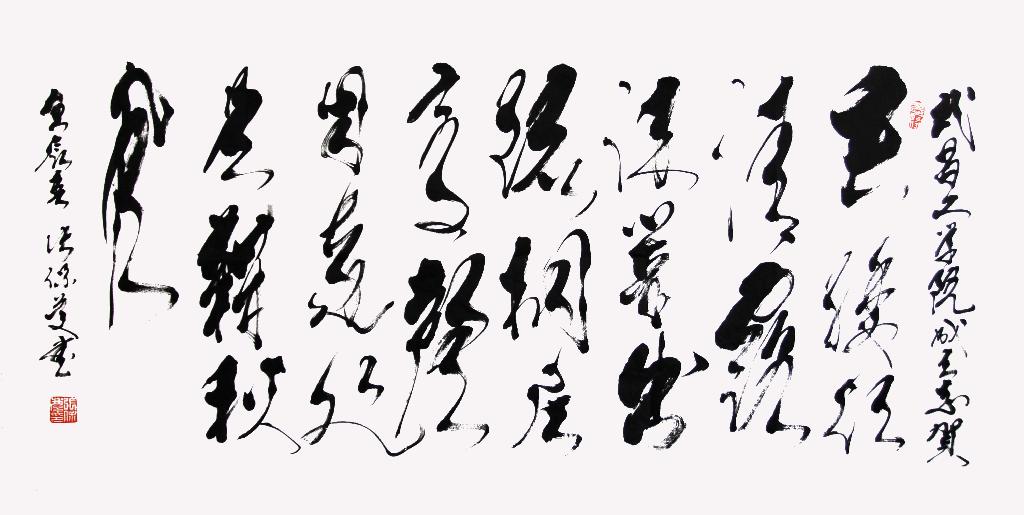 武昌工学院成立志贺
垂緌饮
清露
流響出
疏桐居
高聲
自远非
是藉秋
風
辰春 张 书